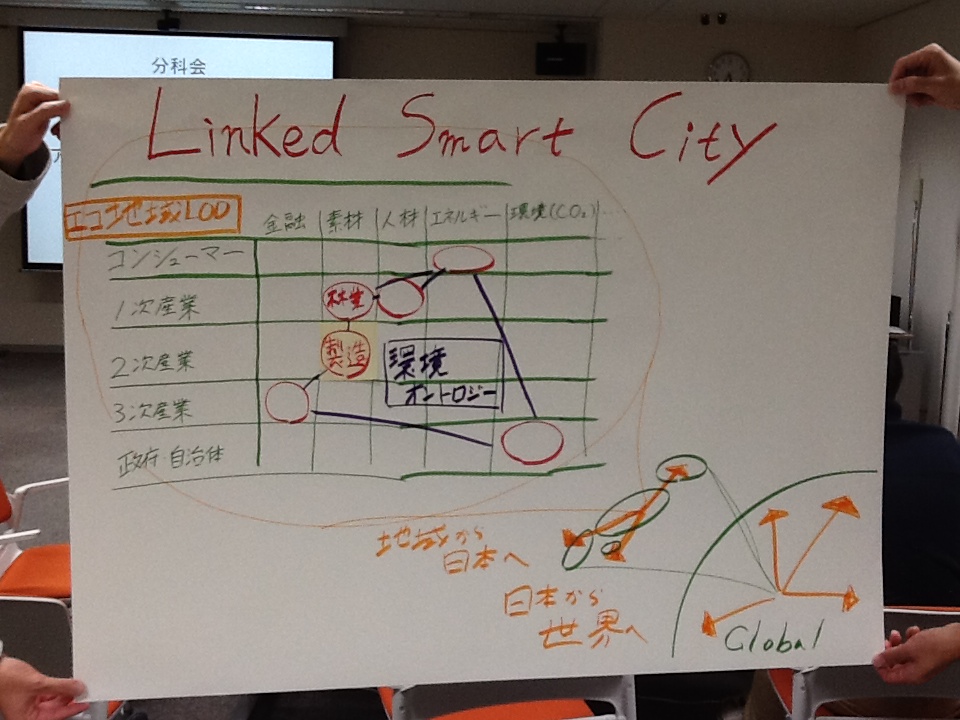 分科会
Linked Smart City
エコ地域LOD
金融 素材 人材 エネルギー 環境(CO₂)...
コンシューマー
1次産業
林業
2次産業
製造
環境
オントロジー
3次産業
政府・自治体
地域から
日本へ
日本から
世界へ
Global